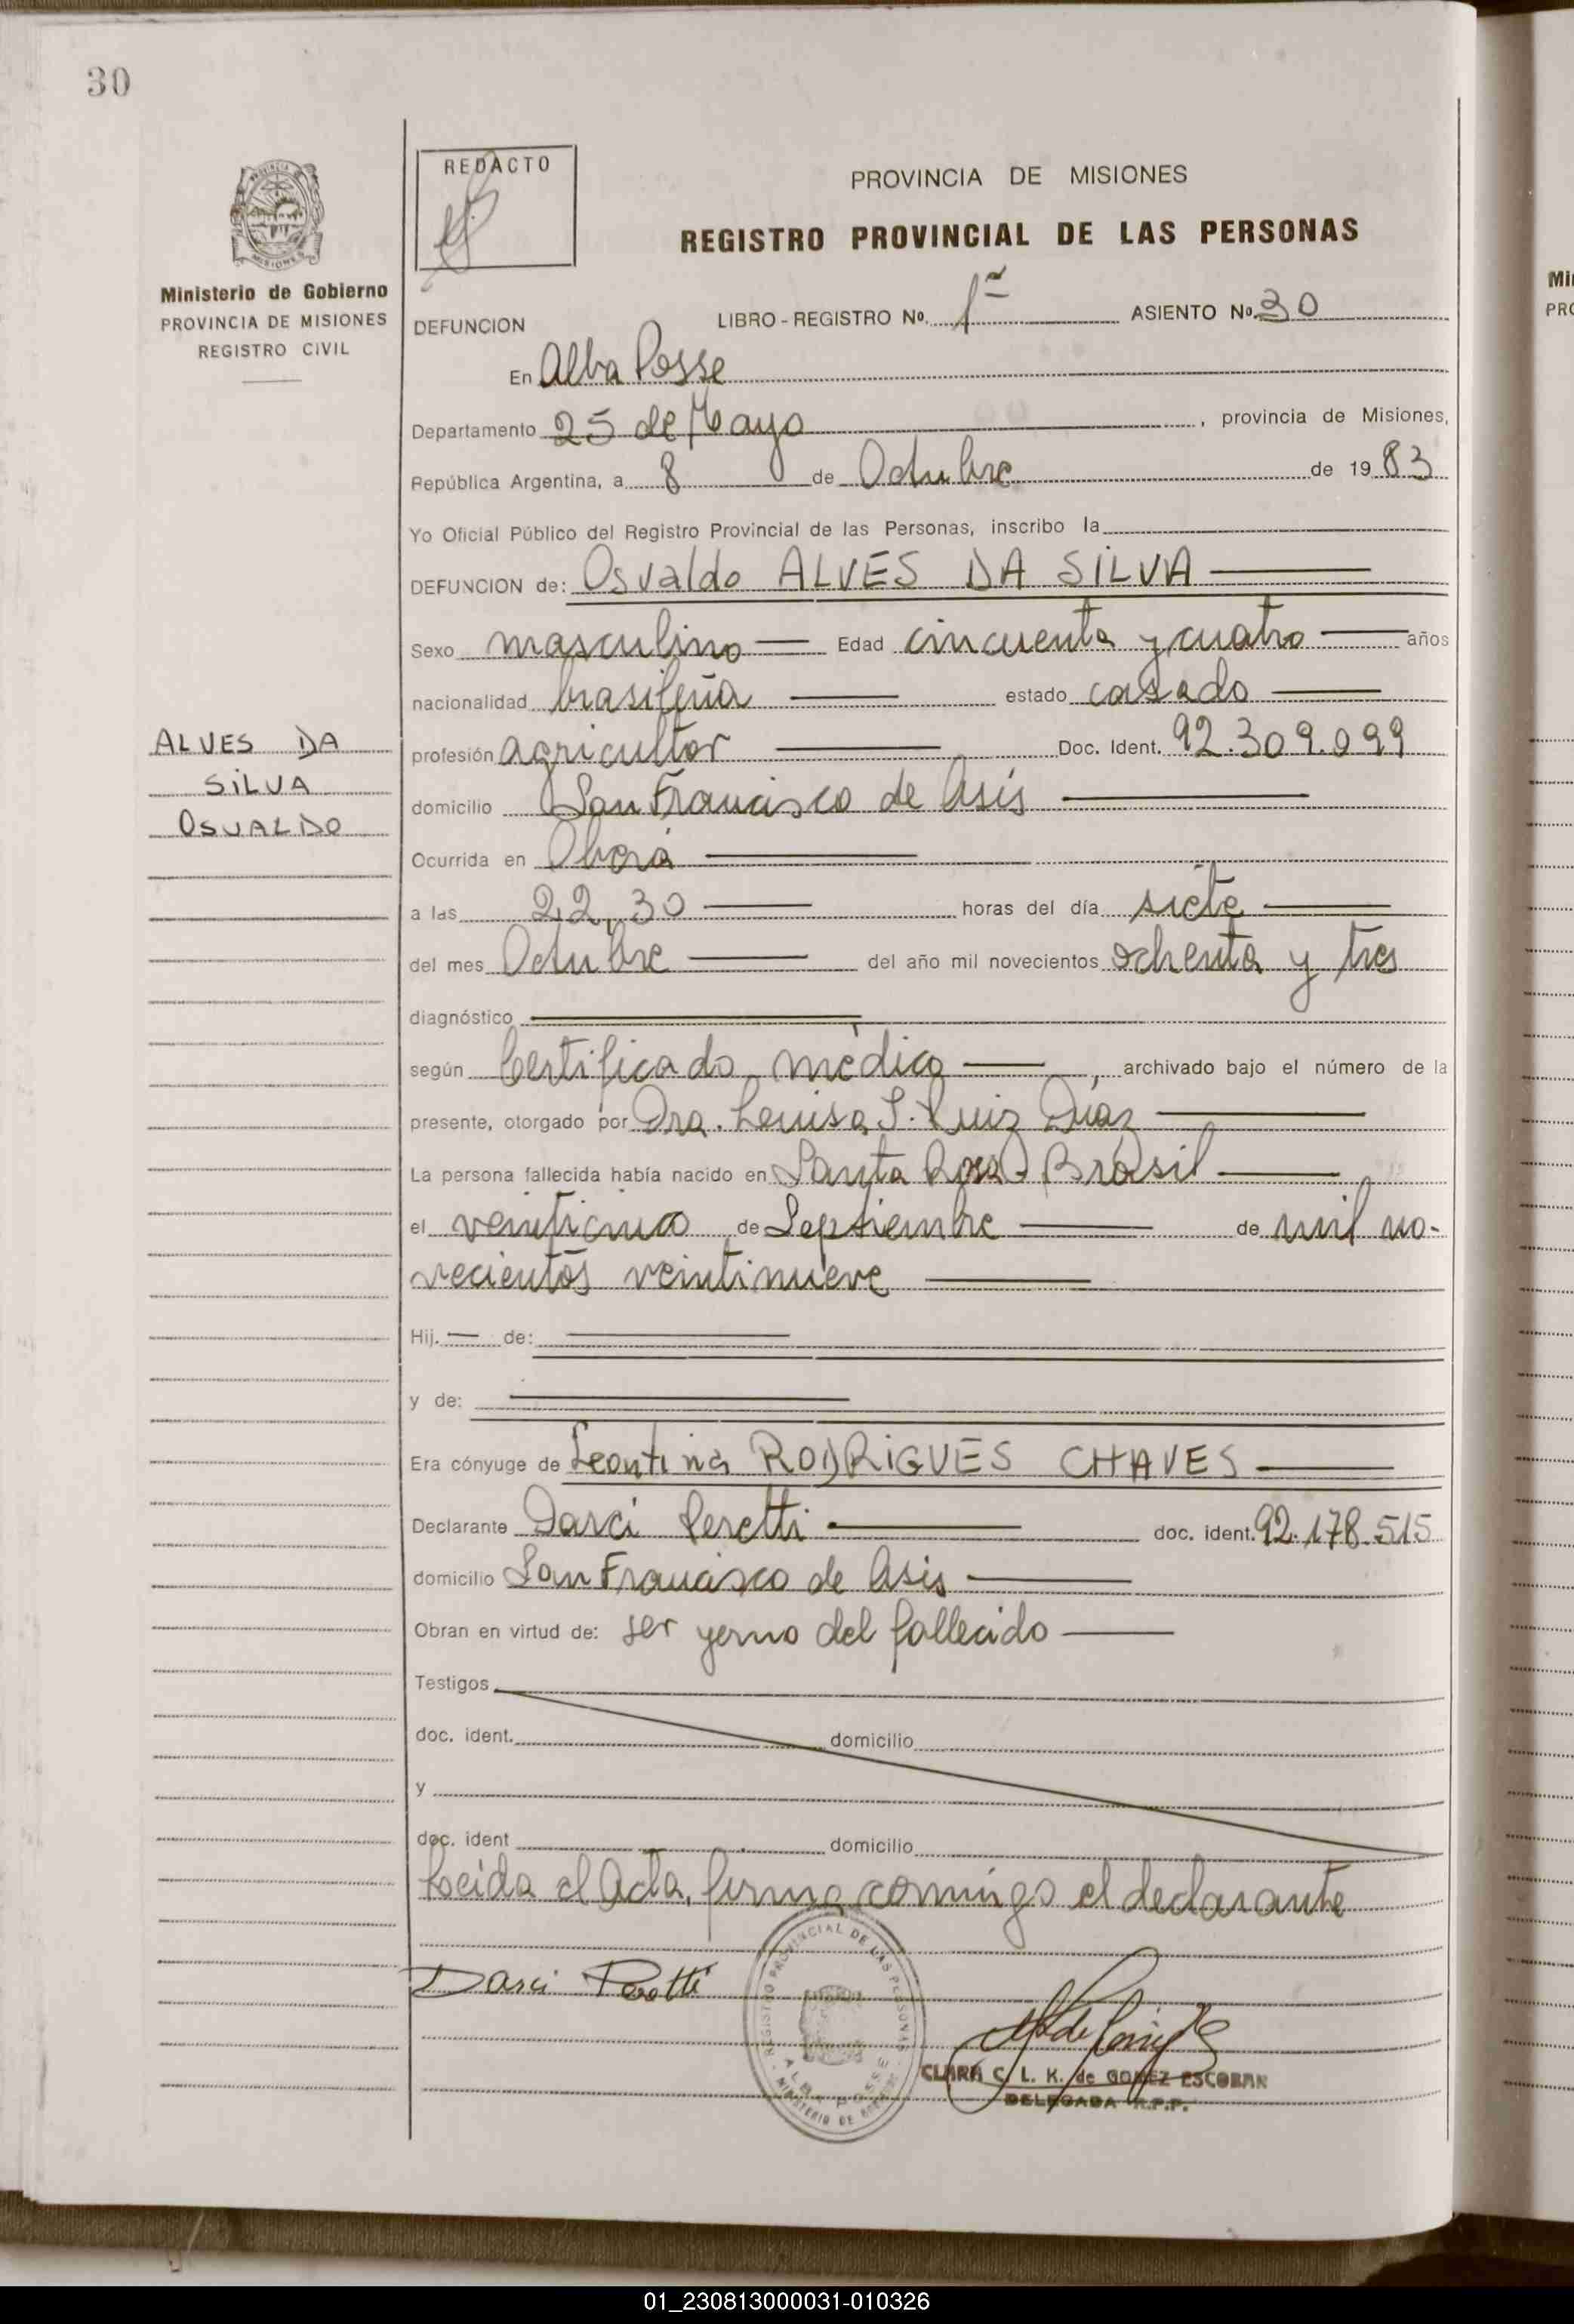 30
REDACTO
PROVINCIA DE MISIONES
REGISTRO PROVINCIAL DE LAS PERSONAS
Ministerio de Gobierno
PROVINCIA DE MISIONES
REGISTRO CIVIL
DEFUNCION
LIBRO - REGISTRO Nº. 1º ASIENTO Nº 30
En Alba Posse
Departamento 25 de Mayo, provincia de Misiones,
República Argentina, a 8 de Octubre de 19 83
Yo Oficial Público del Registro Provincial de las Personas, inscribo la
DEFUNCION de: Osvaldo ALVES DA SILVA
Sexo masculino Edad cincuenta y cuatro años
nacionalidad brasileña estado casado
profesión agricultor Doc. Ident. 92.309.099
domicilio San Francisco de Asís
Ocurrida en Oberá
a las 22,30 horas del día siete
del mes Octubre del año mil novecientos ochenta y tres
diagnóstico
según Certificado médico, archivado bajo el número de la
presente, otorgado por Dra. Luisa S. Ruiz Díaz
La persona fallecida había nacido en Santa Rosa - Brasil
el veinticinco de Septiembre de mil no-
vecientos veintinueve
Hij. de:
y de:
Era cónyuge de Leontina RODRIGUES CHAVES
Declarante Darci Peretti doc. ident. 92.178.515
domicilio San Francisco de Asis
Obran en virtud de: ser yerno del fallecido
Testigos
doc. ident. domicilio
y
doc. ident domicilio
Leida el Acta, firma conmigo el declarante
Darci Perotti
ALVES DA
SILVA
OSVALDO
REGISTRO PROVINCIAL DE LAS PERSONAS
ALBA POSSE
MINISTERIO DE GOBIERNO
CLARA C. L. K. de GOMEZ ESCOBAR
DELEGADA R.P.P.
Mi
PRO
01_230813000031-010326